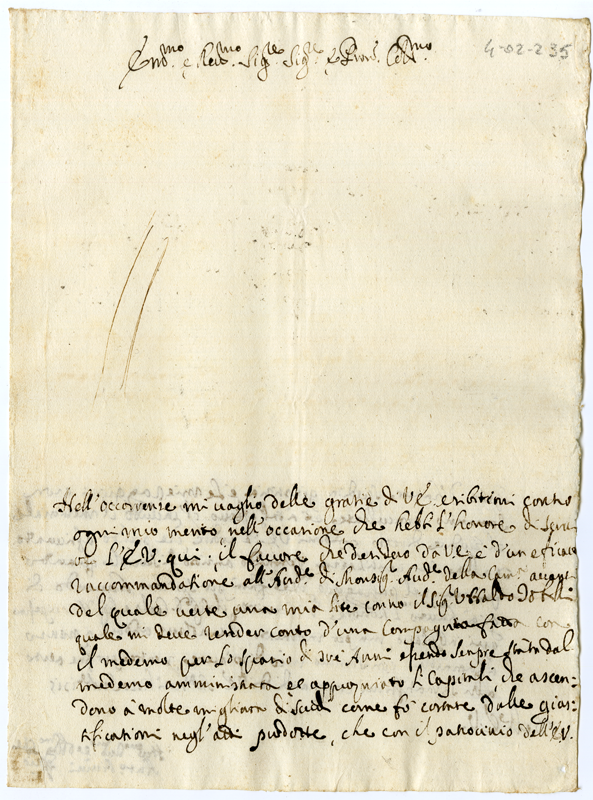 4-02-235
Em.mo e Rev.mo Sig.re Sig.re e Pron.e Col.mo
Nell'occorrenze mi vaglio delle gratie di V.E. esibitemi contro
ogni mio merito nell'occasione che hebbi l'honore di
l'E.V. qui, il favore che desidero da V.E. è d'un efficace
raccommandatione all'Aud.e di Monsig.r Aud.e della Cam.a avanti
del quale verte una mia lite contro il Sig.r Ubbaldo
quale mi deve render conto d'una Compagnia fatta con
il medemo per lo spatio di trè Anni essendo sempre stata dal
medemo amministrata et appropriato li Capitali, che ascen-
dono à molte migliara di scudi come fò constare dalle gius-
tificationi negl'atti prodotte, che con il patrocinio dell'E.V.